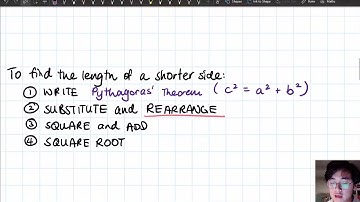 To find the length of a shorter side:
① WRITE Pythagoras' Theorem (c² = a² + b²)
② SUBSTITUTE and REARRANGE
③ SQUARE and ADD
④ SQUARE ROOT